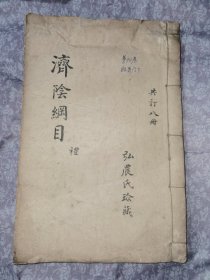 共訂八冊
弘農氏珍藏
濟陰綱目
禮